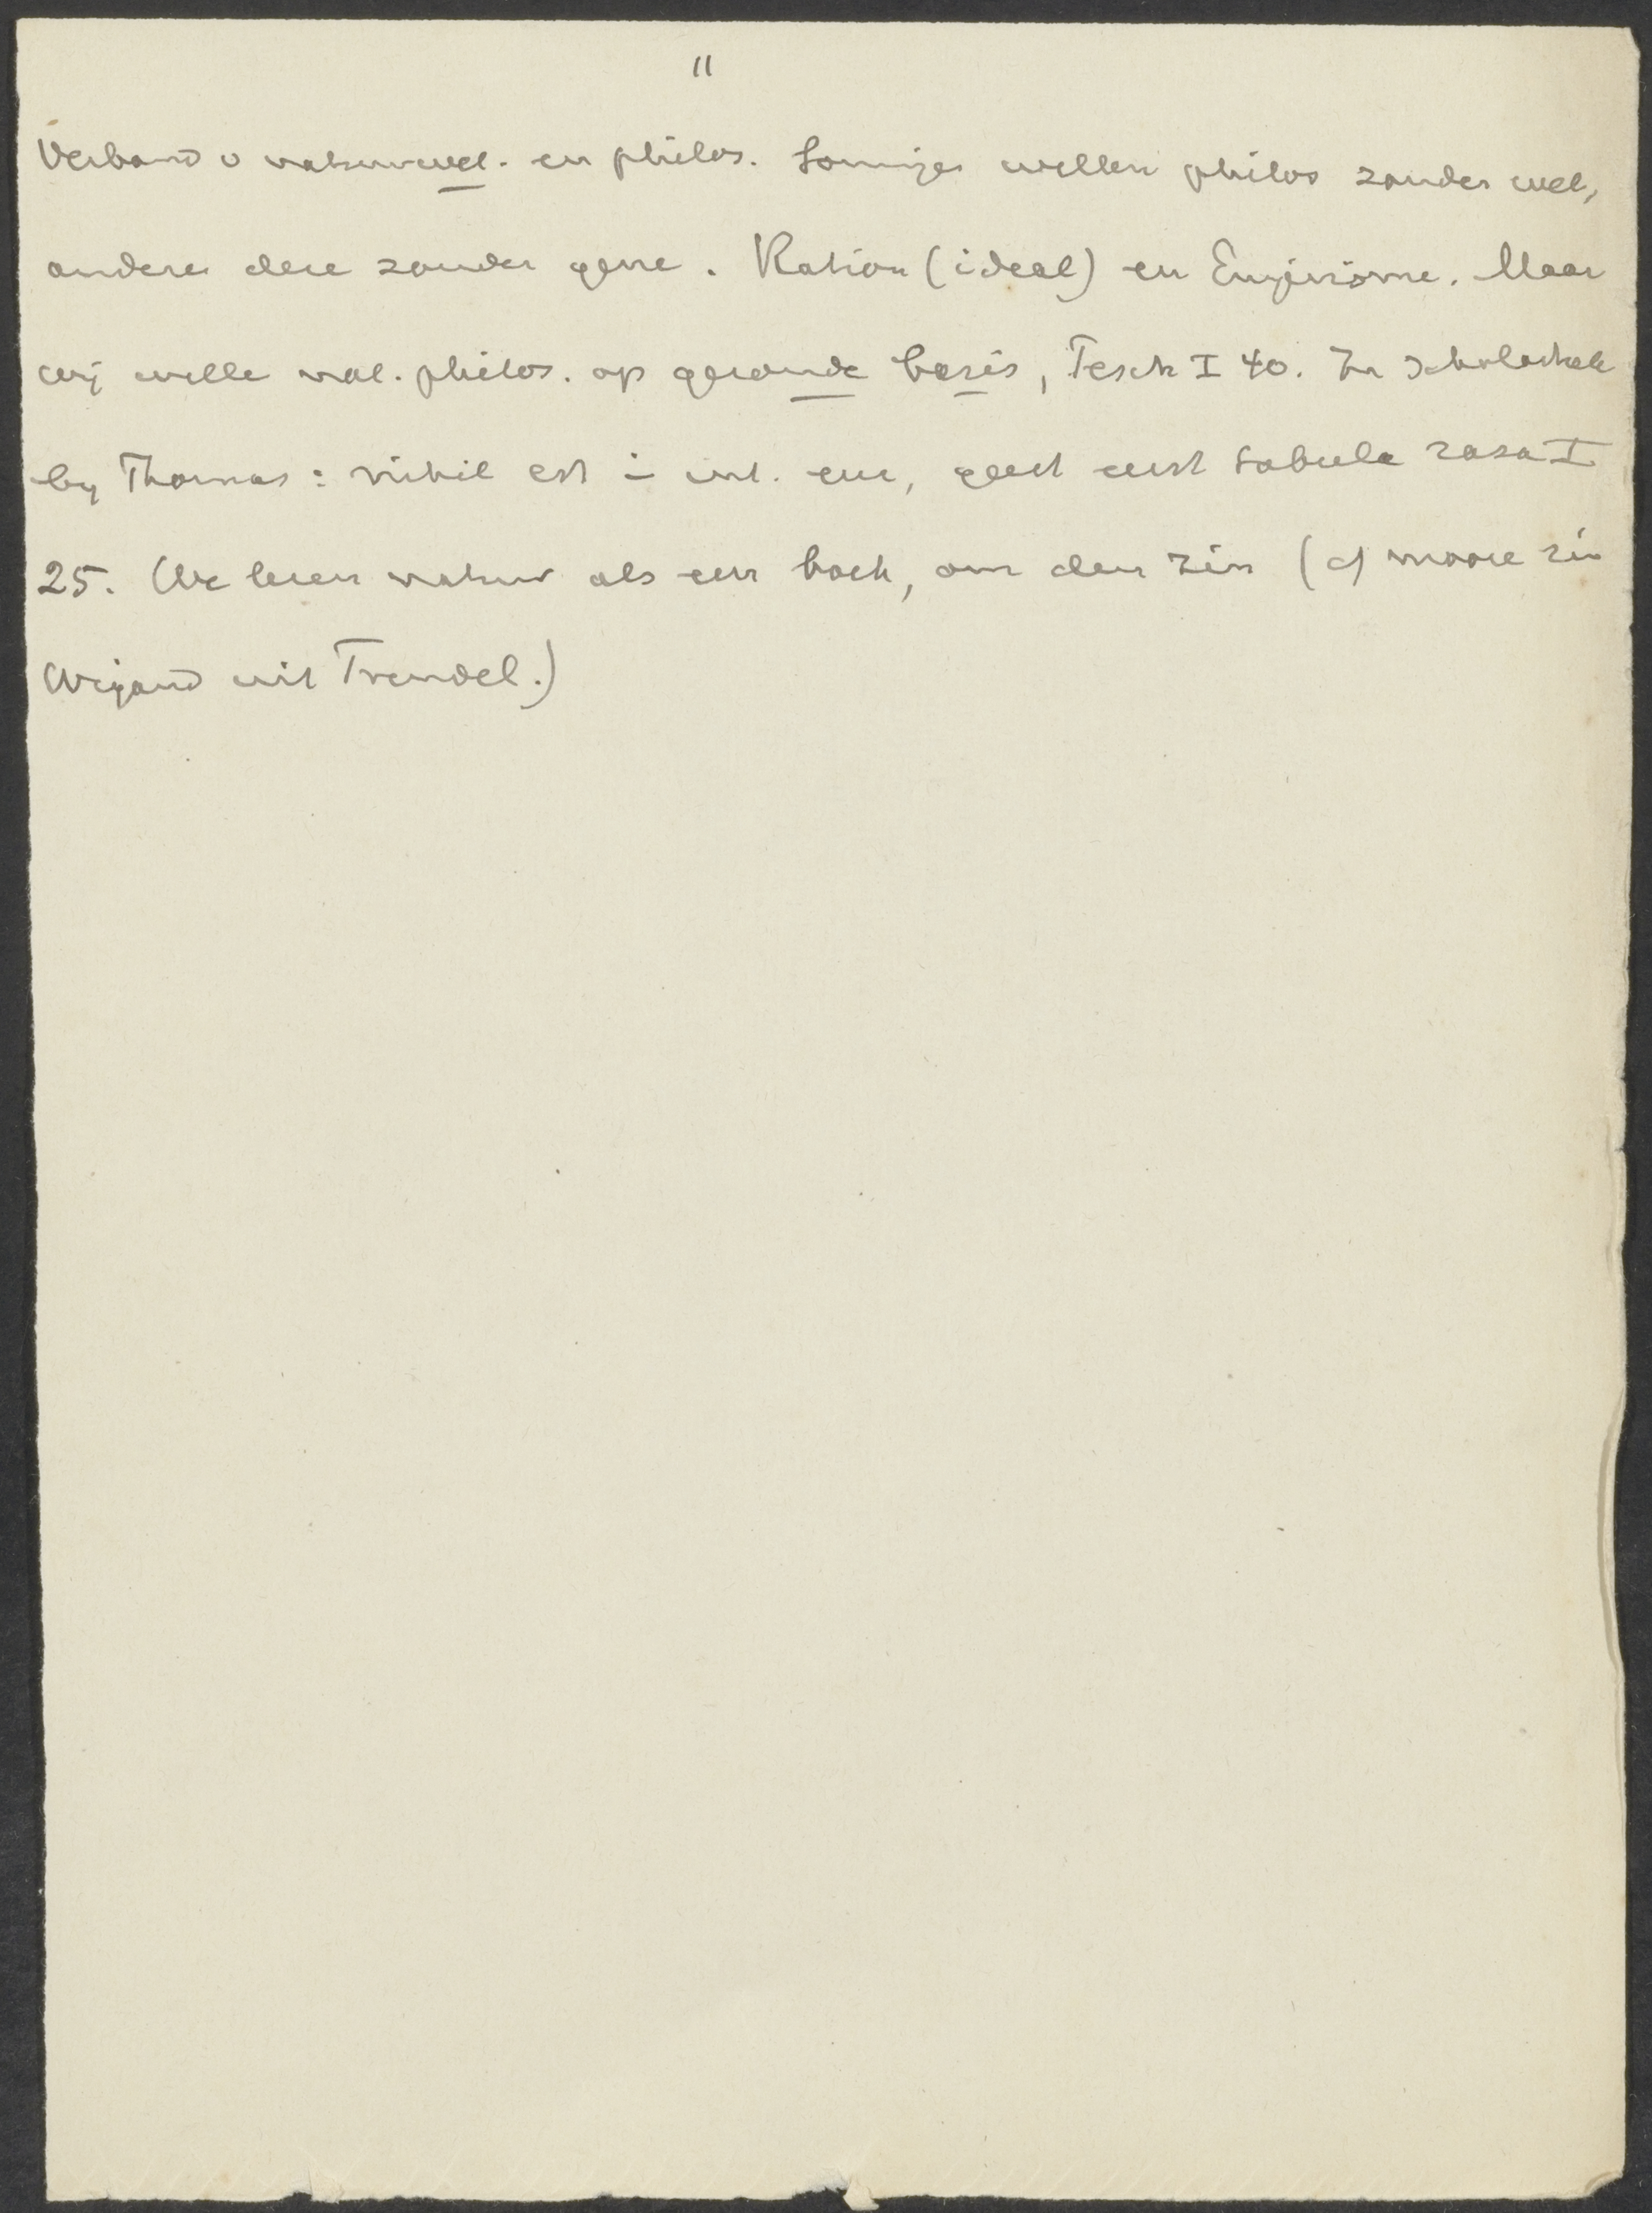 11
Verband v natuurwet. en philos. Sommiges willen philos zonder wet,
andere deze zonder gene. Ration (ideal) en Empirisme. Maar
wij wille nat. philos. op gezonde basis, Pesch I 40. Zoo Scholastiek
by Thomas: nihil est i int. enz, geest eerst tabula rasa I
25. We lezen natuur als een boek, om den zin (cf mooie zin
Wigand uit Trendel.)